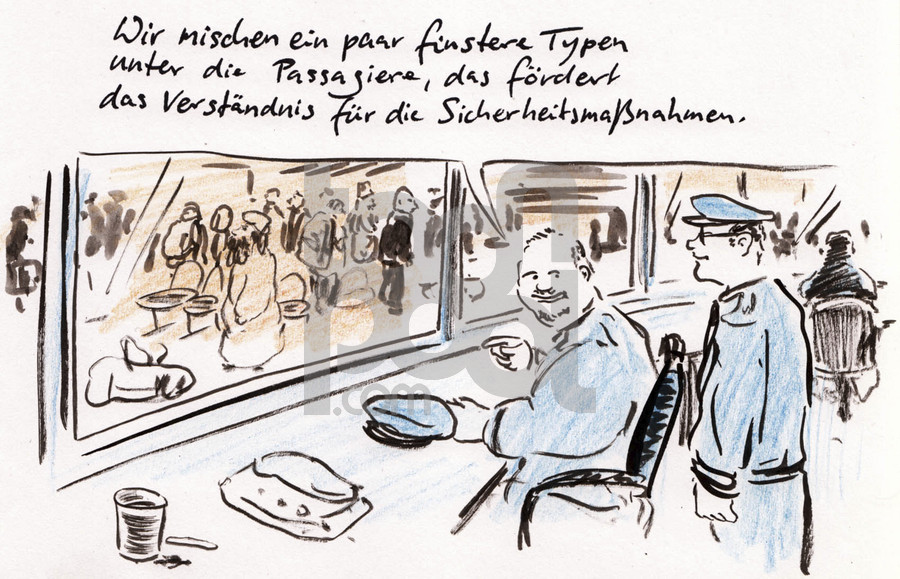 Wir mischen ein paar finstere Typen
unter die Passagiere, das fördert
das Verständnis für die Sicherheitsmaßnahmen.
toonpool
.com